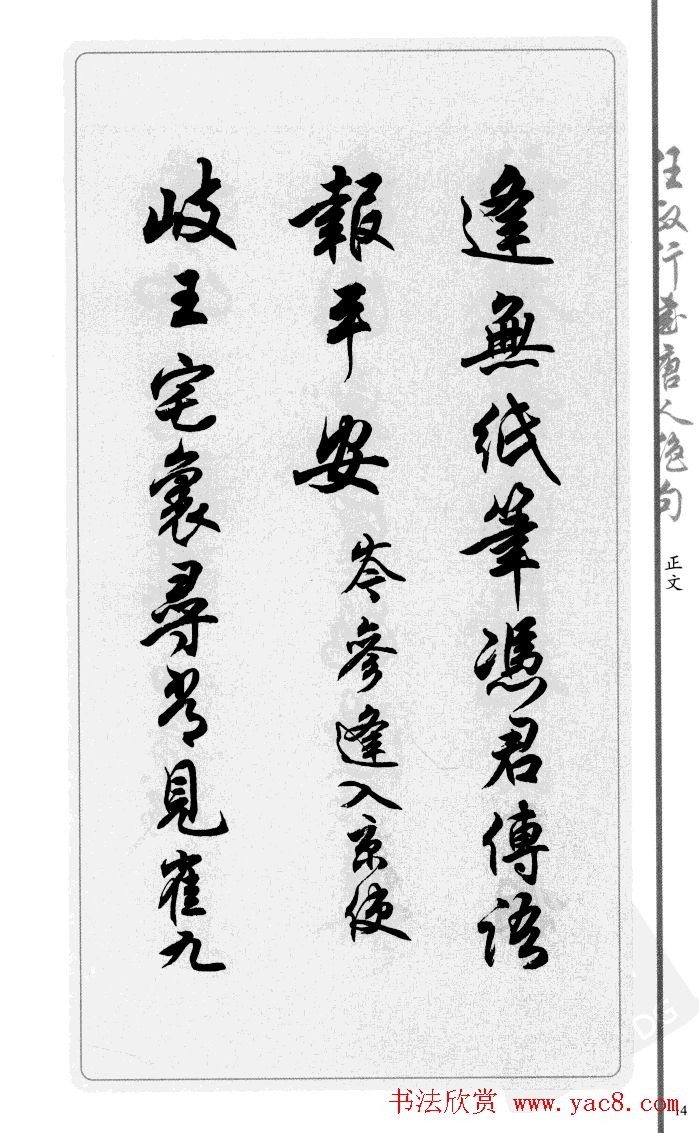 逢無紙筆憑君傳語
報平安 岑參逢入京使
岐王宅裏尋常見崔九
任政行書唐人絶句
正文
14
书法欣赏 www.yac8.com
DG